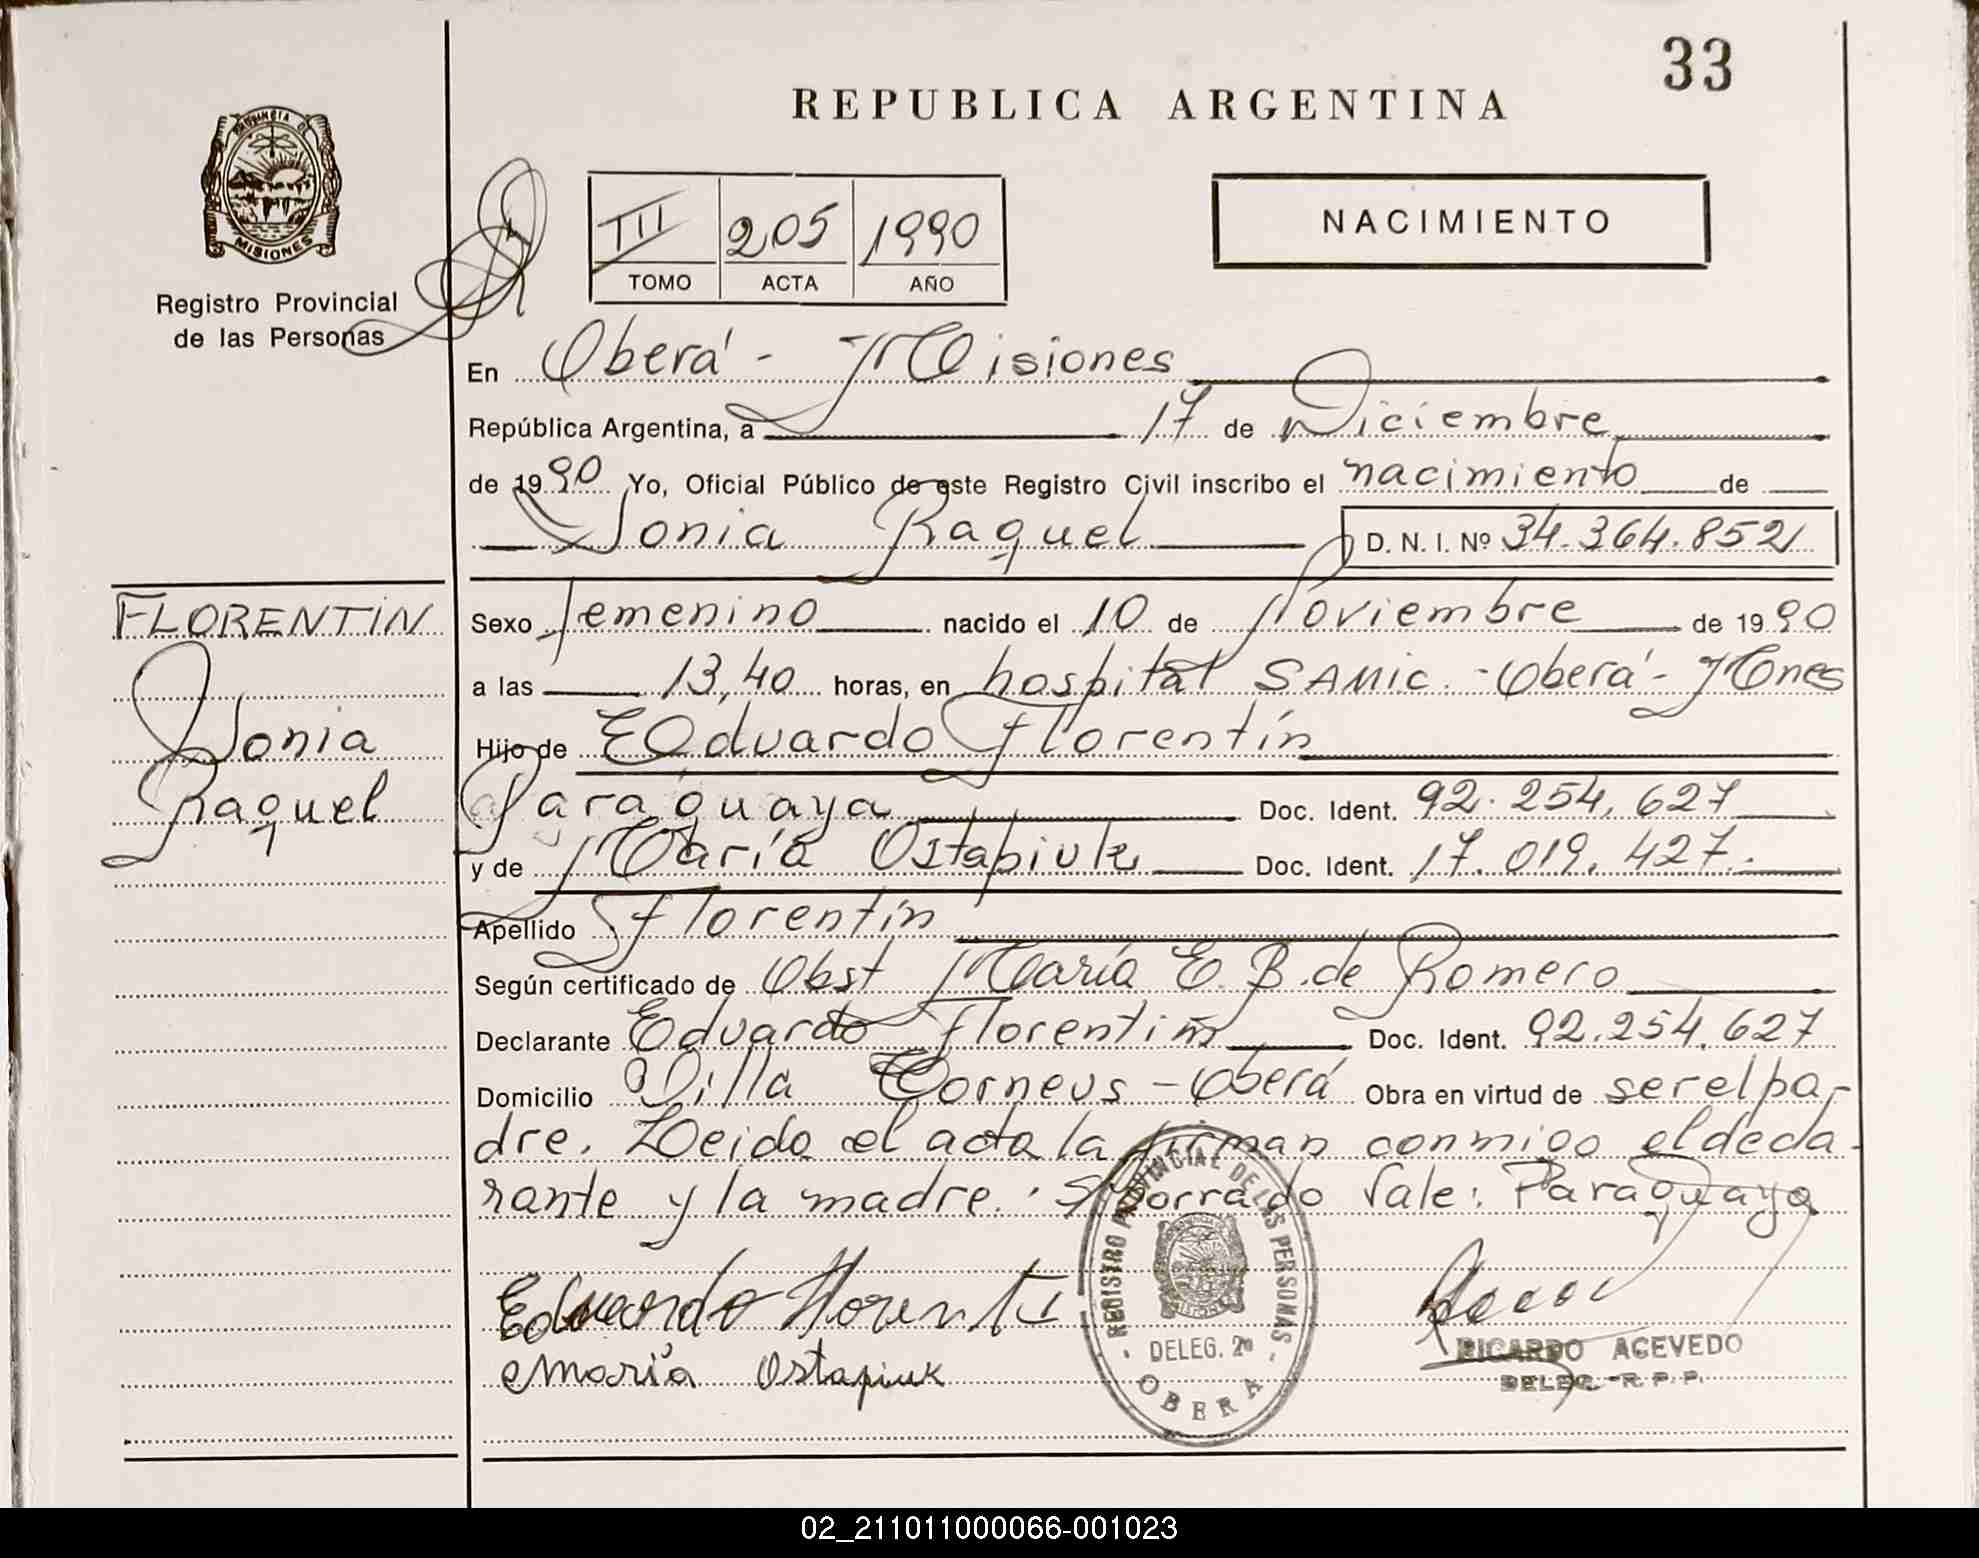 33
REPUBLICA ARGENTINA
PROVINCIA DE
MISIONES
Registro Provincial
de las Personas
III 205 1990
TOMO ACTA AÑO
NACIMIENTO
En Oberá - Misiones
República Argentina, a 17 de Diciembre
de 1990 Yo, Oficial Público de este Registro Civil inscribo el nacimiento de
Sonia Raquel D. N. I. Nº 34.364.852
FLORENTÍN
Sonia
Raquel
Sexo femenino nacido el 10 de Noviembre de 1990
a las 13,40 horas, en hospital SAMIC. - Oberá - Mnes
Hijo de Eduardo Florentín
Paraguaya Doc. Ident. 92.254.627
y de María Ostapiuk Doc. Ident. 17.019.427.
Apellido Florentín
Según certificado de Obst María E. B. de Romero
Declarante Eduardo Florentín Doc. Ident. 92.254.627
Domicilio Villa Torneus - Oberá Obra en virtud de ser el pa-
dre. Leida el acta la firman conmigo el decla-
rante y la madre. S/borrado Vale: Paraguaya
Eduardo Florenti
María Ostapiuk
REGISTRO PROVINCIAL DE LAS PERSONAS
DELEG. 2ª
OBERA
RICARDO ACEVEDO
DELEG. R. P. P.
02_211011000066-001023